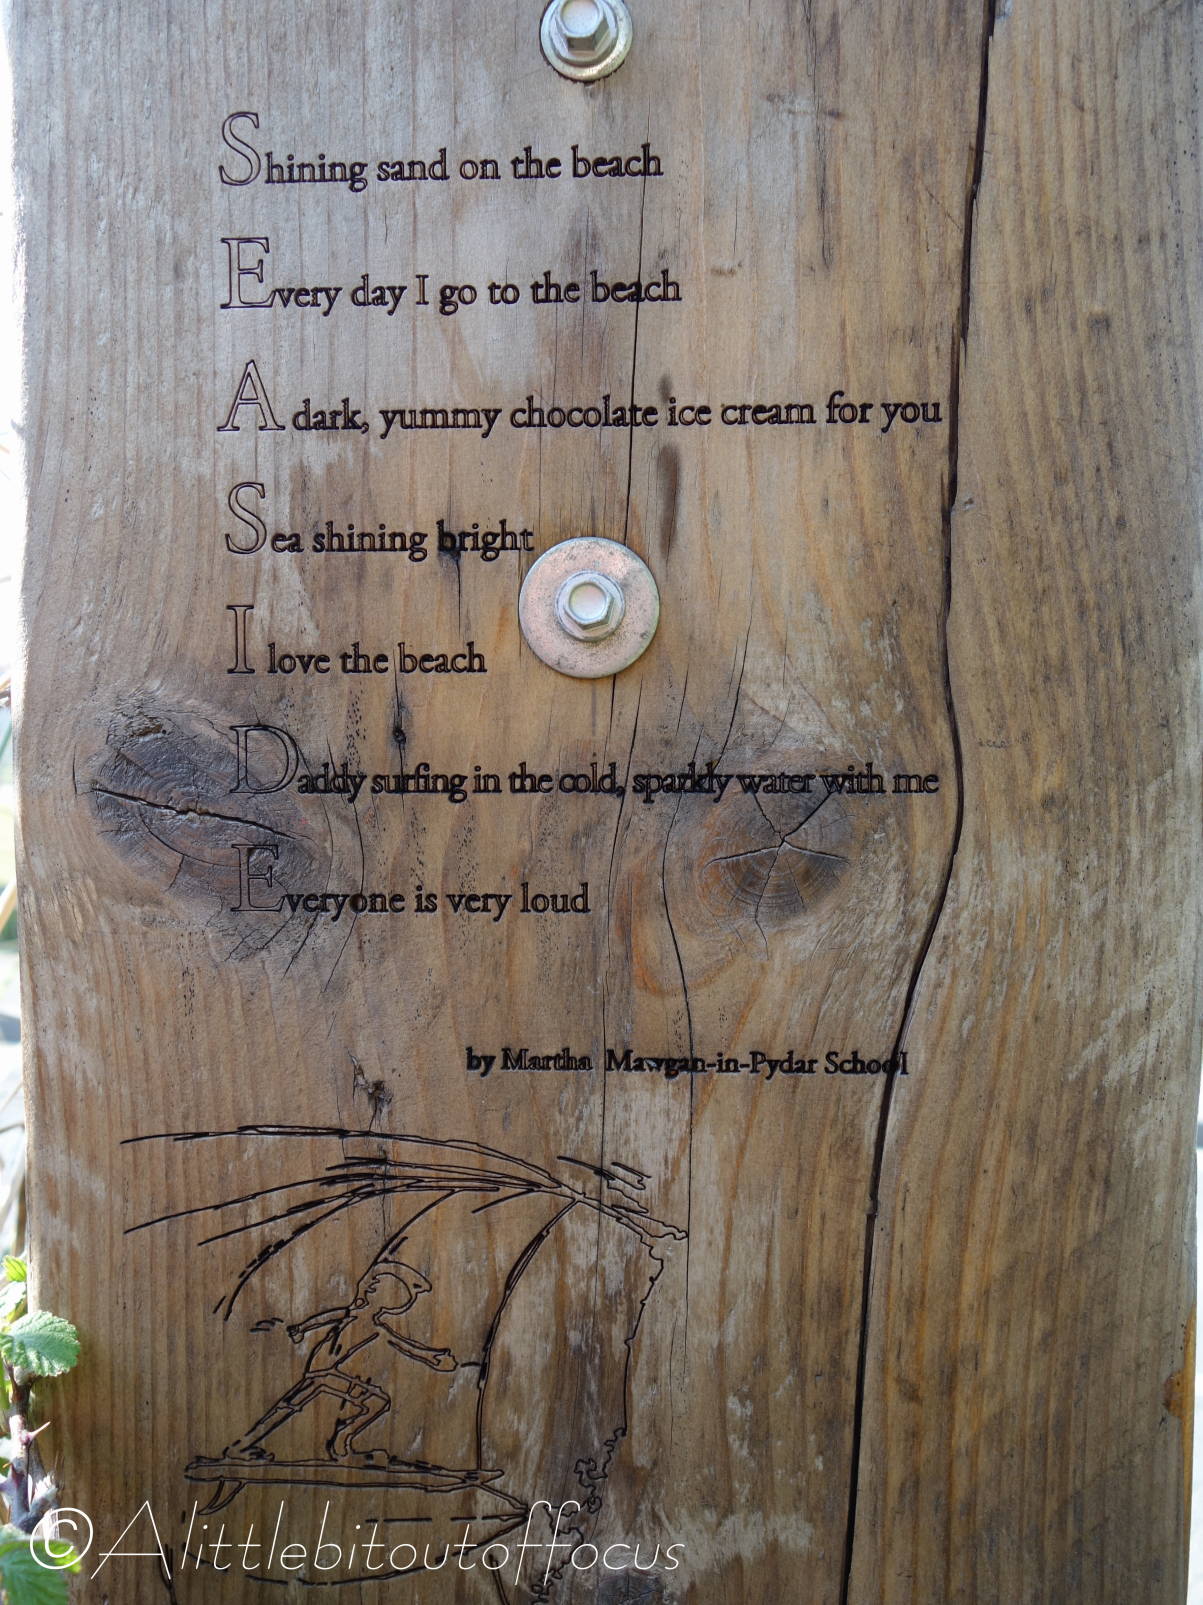 Shining sand on the beach
Every day I go to the beach
A dark, yummy chocolate ice cream for you
Sea shining bright
I love the beach
Daddy surfing in the cold, sparkly water with me
Everyone is very loud
by Martha Mawgan-in-Pydar School
©Alittlebitoutoffocus